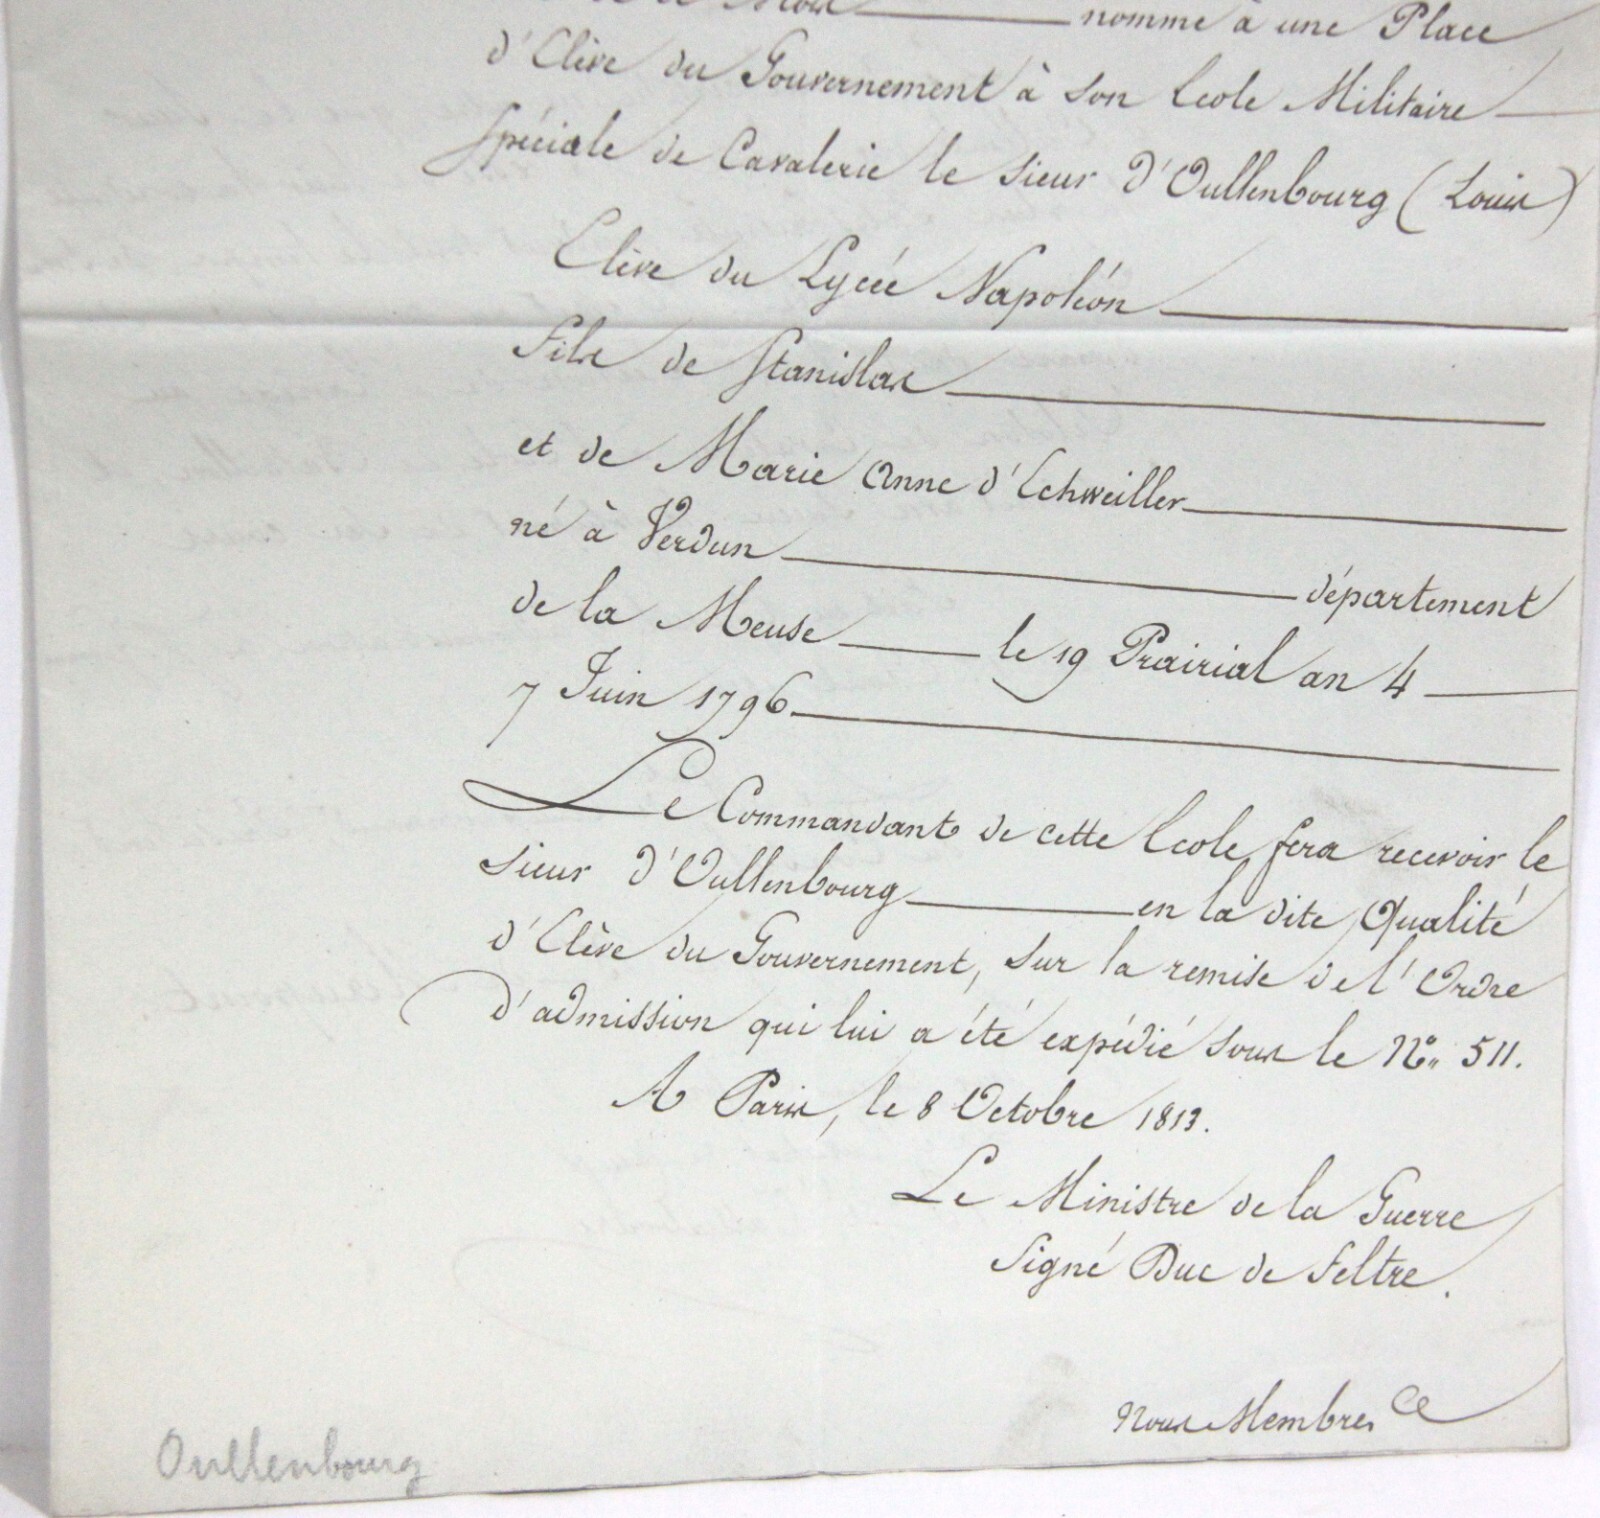 Mois nommé à une Place
d'Elève du Gouvernement à son Ecole Militaire
Spéciale de Cavalerie le Sieur d'Oullenbourg (Louis)
Elève du Lycée Napoléon
fils de Stanislas
et de Marie Anne d'Echweiller
né à Verdun département
de la Meuse le 19 Prairial an 4
7 Juin 1796
Le Commandant de cette Ecole fera recevoir le
Sieur d'Oullenbourg en la dite Qualité
d'Elève du Gouvernement, sur la remise de l'Ordre
d'admission qui lui a été expédié sous le N° 511.
A Paris, le 8 Octobre 1813.
Le Ministre de la Guerre
Signé Duc de Feltre.
Nous Membres
Oullenbourg